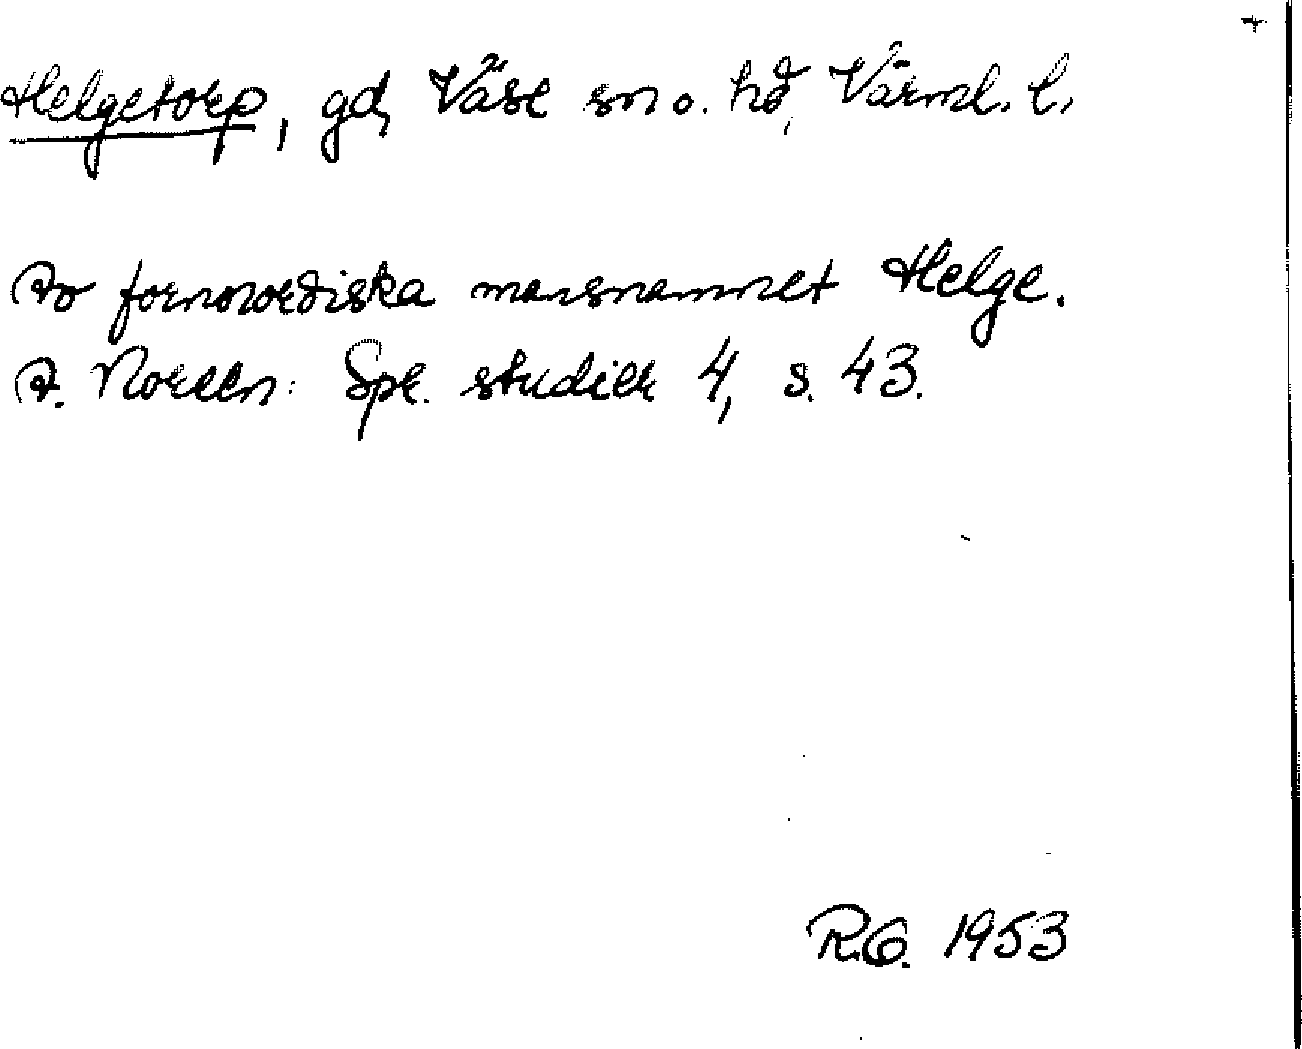 Helgetorp, gd, Väse sn o. hd, Värml. l.
Av fornnordiska mansnamnet Helge.
A. Noreen: Spr. studier 4, s. 43.
R.G. 1953